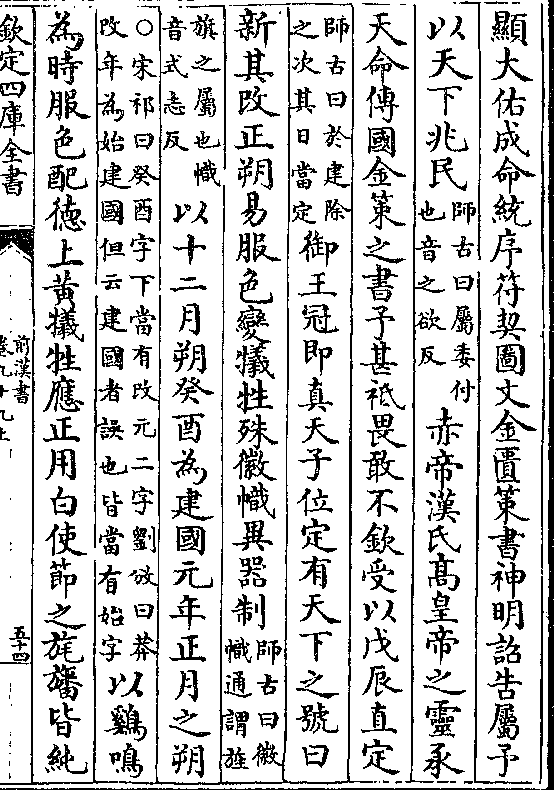 顯大佑成命統序符契圖文金匱策書神明詔告屬予
以天下兆民師古曰屬委付也音之欲反赤帝漢氏髙皇帝之靈承
天命傳國金策之書予甚祗畏敢不欽受以戊辰直定
師古曰於建除之次其日當定御王冠即真天子位定有天下之號曰
新其改正朔易服色變犧牲殊徽幟異器制師古曰徽幟通謂旌
旗之屬也幟音式志反以十二月朔癸酉為建國元年正月之朔
○宋祁曰癸酉字下當有改元二字劉攽曰莽改年為始建國但云建國者誤也皆當有始字以鷄鳴
為時服色配德上黃犧牲應正用白使節之旄旛皆純
欽定四庫全書
前漢書
卷九十九上
五十四